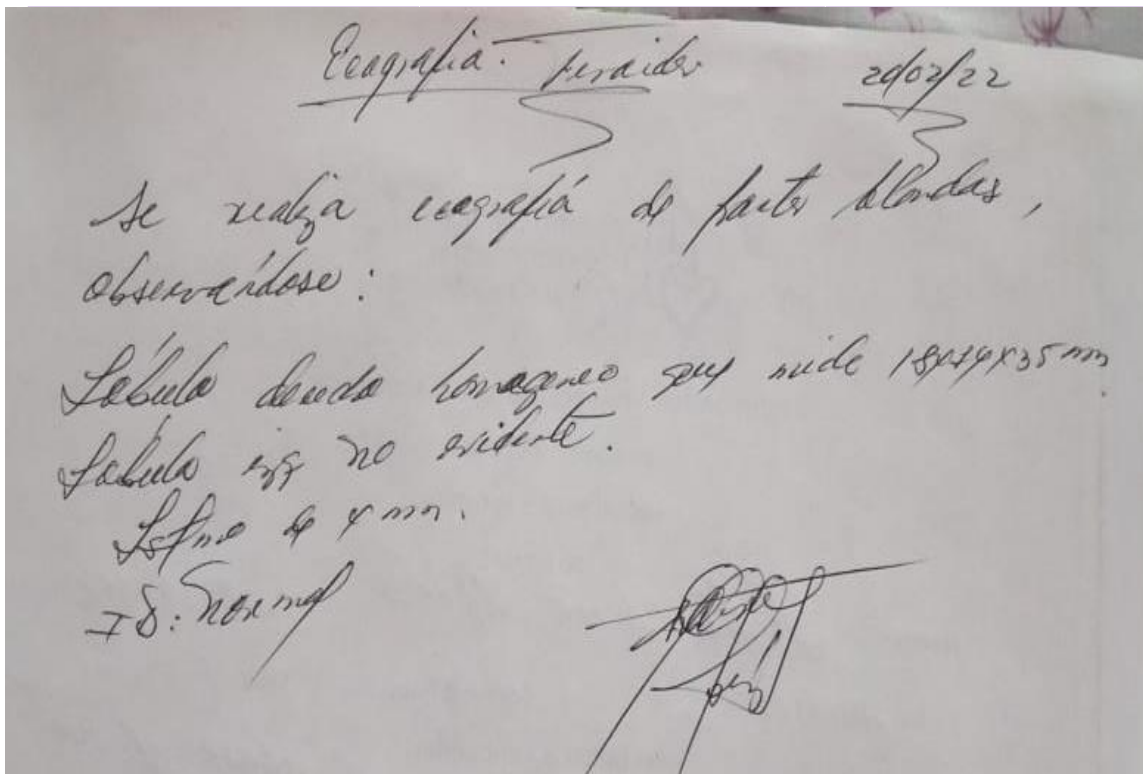 Ecografia. Tiroides 20/02/22
Se realiza ecografiá de partes blandas,
observándose:
Lóbulo derecho homogeneo que mide 18x14x35 mm
Lóbulo izq no evidente.
Istmo de 4 mm.
ID: Normal